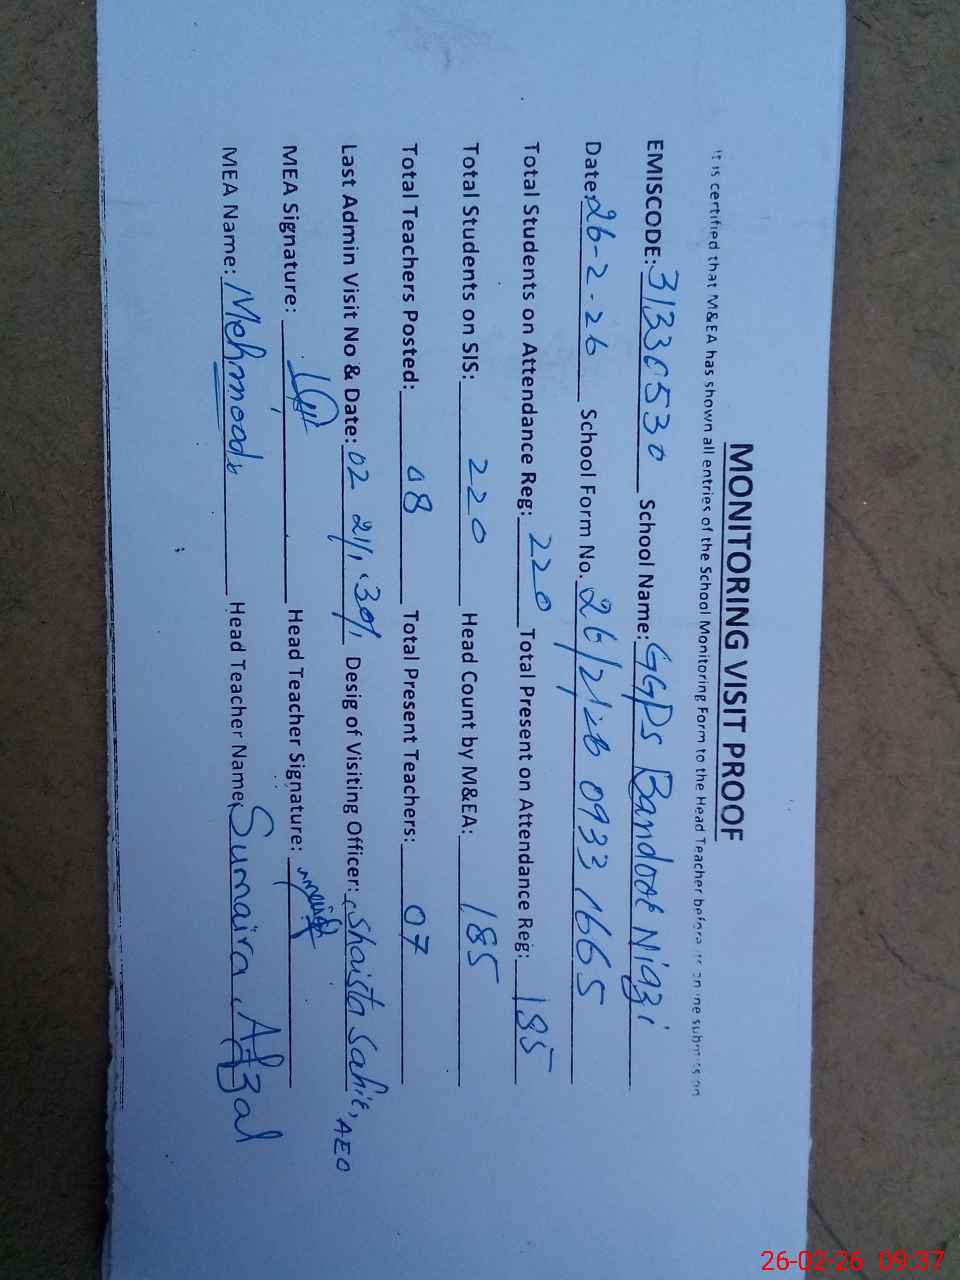 MONITORING VISIT PROOF
It is certified that M&EA has shown all entries of the School Monitoring Form to the Head Teacher before its online submission
EMISCODE: 31330530 School Name: GGPS Bandoot Niazi
Date: 26-2-26 School Form No. 26/2/26 0933 1665
Total Students on Attendance Reg: 220 Total Present on Attendance Reg: 185
Total Students on SIS: 220 Head Count by M&EA: 185
Total Teachers Posted: 08 Total Present Teachers: 07
Last Admin Visit No & Date: 02 21/1, 30/1 Desig of Visiting Officer: Shaista Sahie, AEO
MEA Signature: Head Teacher Signature:
MEA Name: Mehmood Head Teacher Name: Sumaira Afzal
26-02-26 09:37